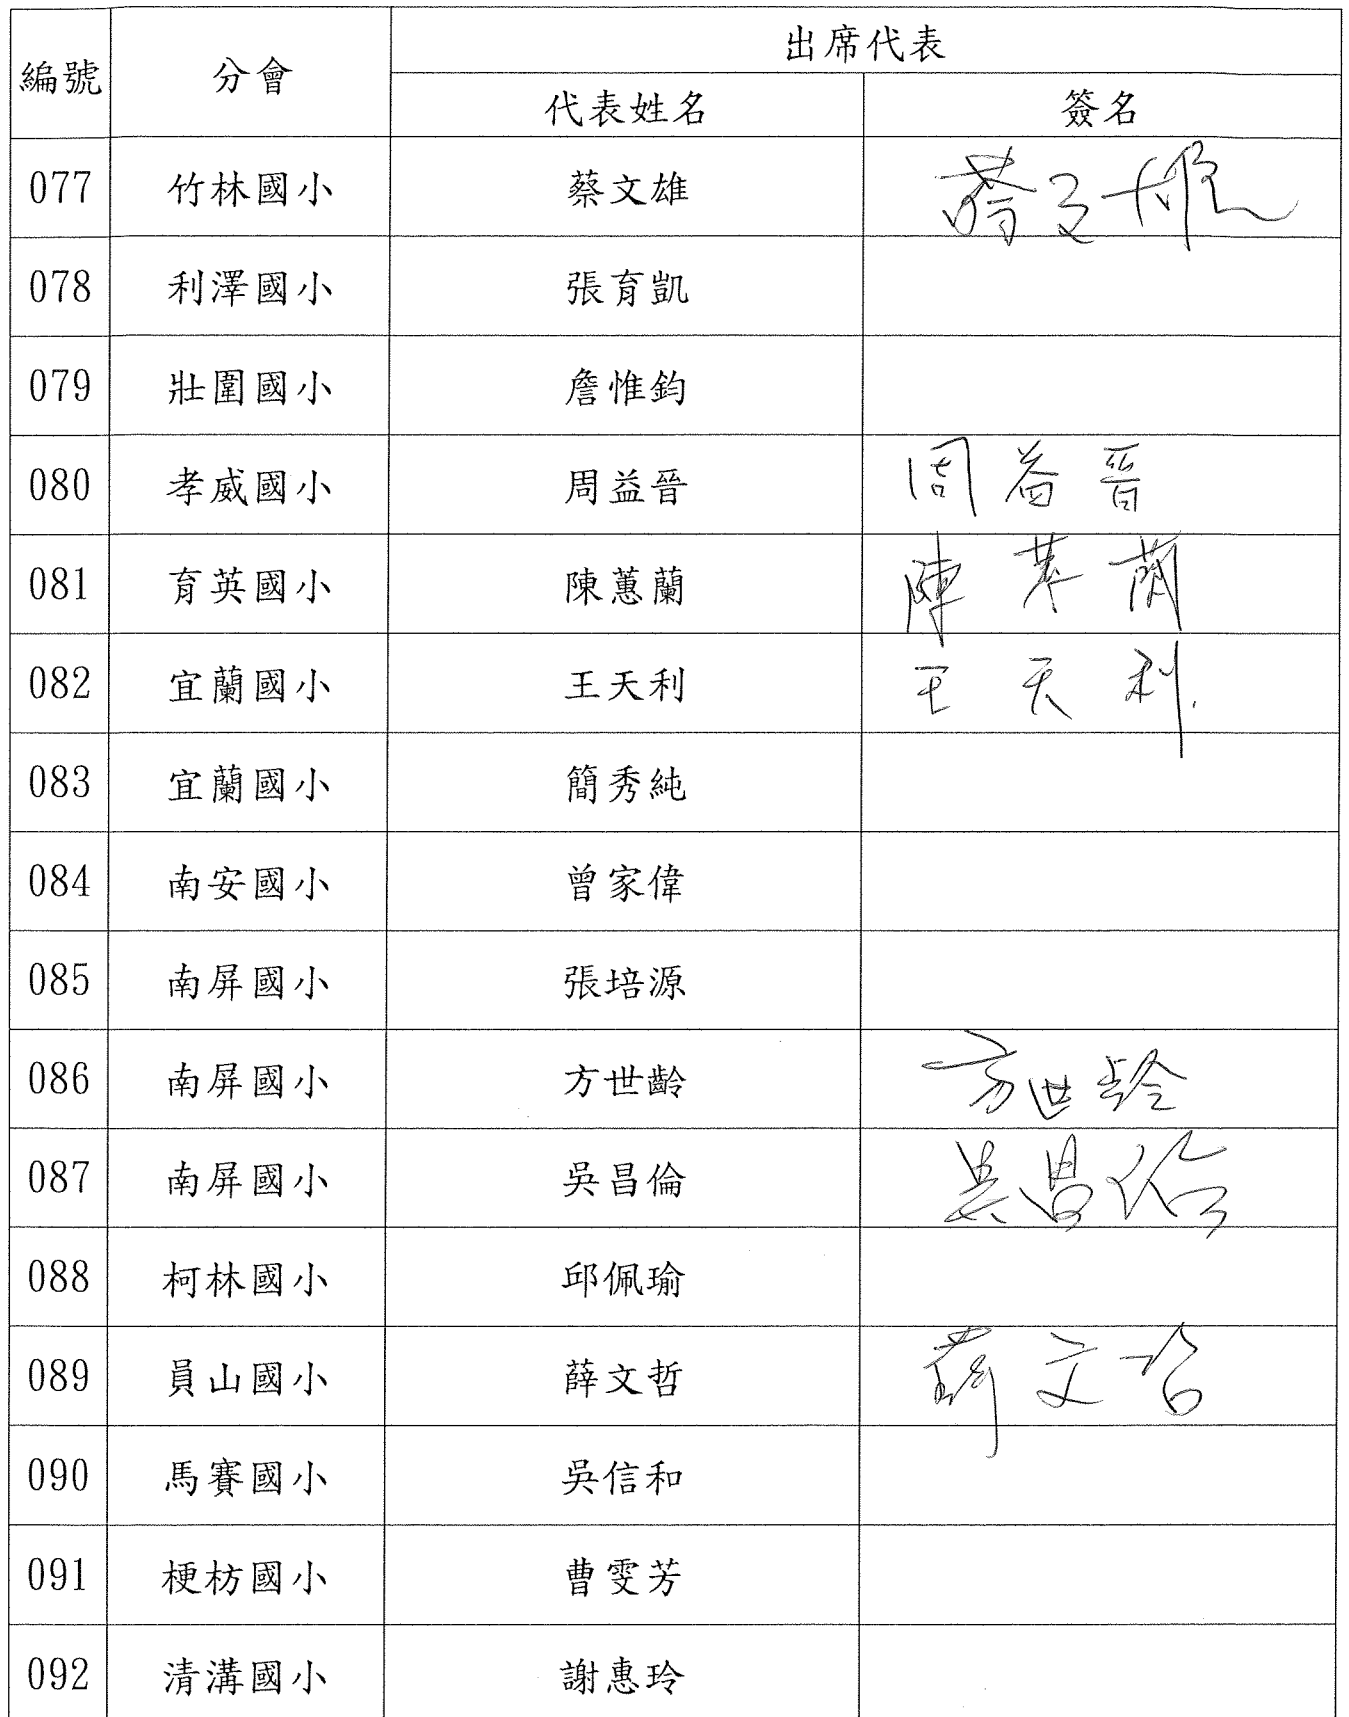 編號 分會 出席代表
代表姓名 簽名
077 竹林國小 蔡文雄 蔡文雄
078 利澤國小 張育凱
079 壯圍國小 詹惟鈞
080 孝威國小 周益晉 周益晉
081 育英國小 陳蕙蘭 陳蕙蘭
082 宜蘭國小 王天利 王天利
083 宜蘭國小 簡秀純
084 南安國小 曾家偉
085 南屏國小 張培源
086 南屏國小 方世齡 方世齡
087 南屏國小 吳昌倫 吳昌倫
088 柯林國小 邱佩瑜
089 員山國小 薛文哲 薛文哲
090 馬賽國小 吳信和
091 梗枋國小 曹雯芳
092 清溝國小 謝惠玲